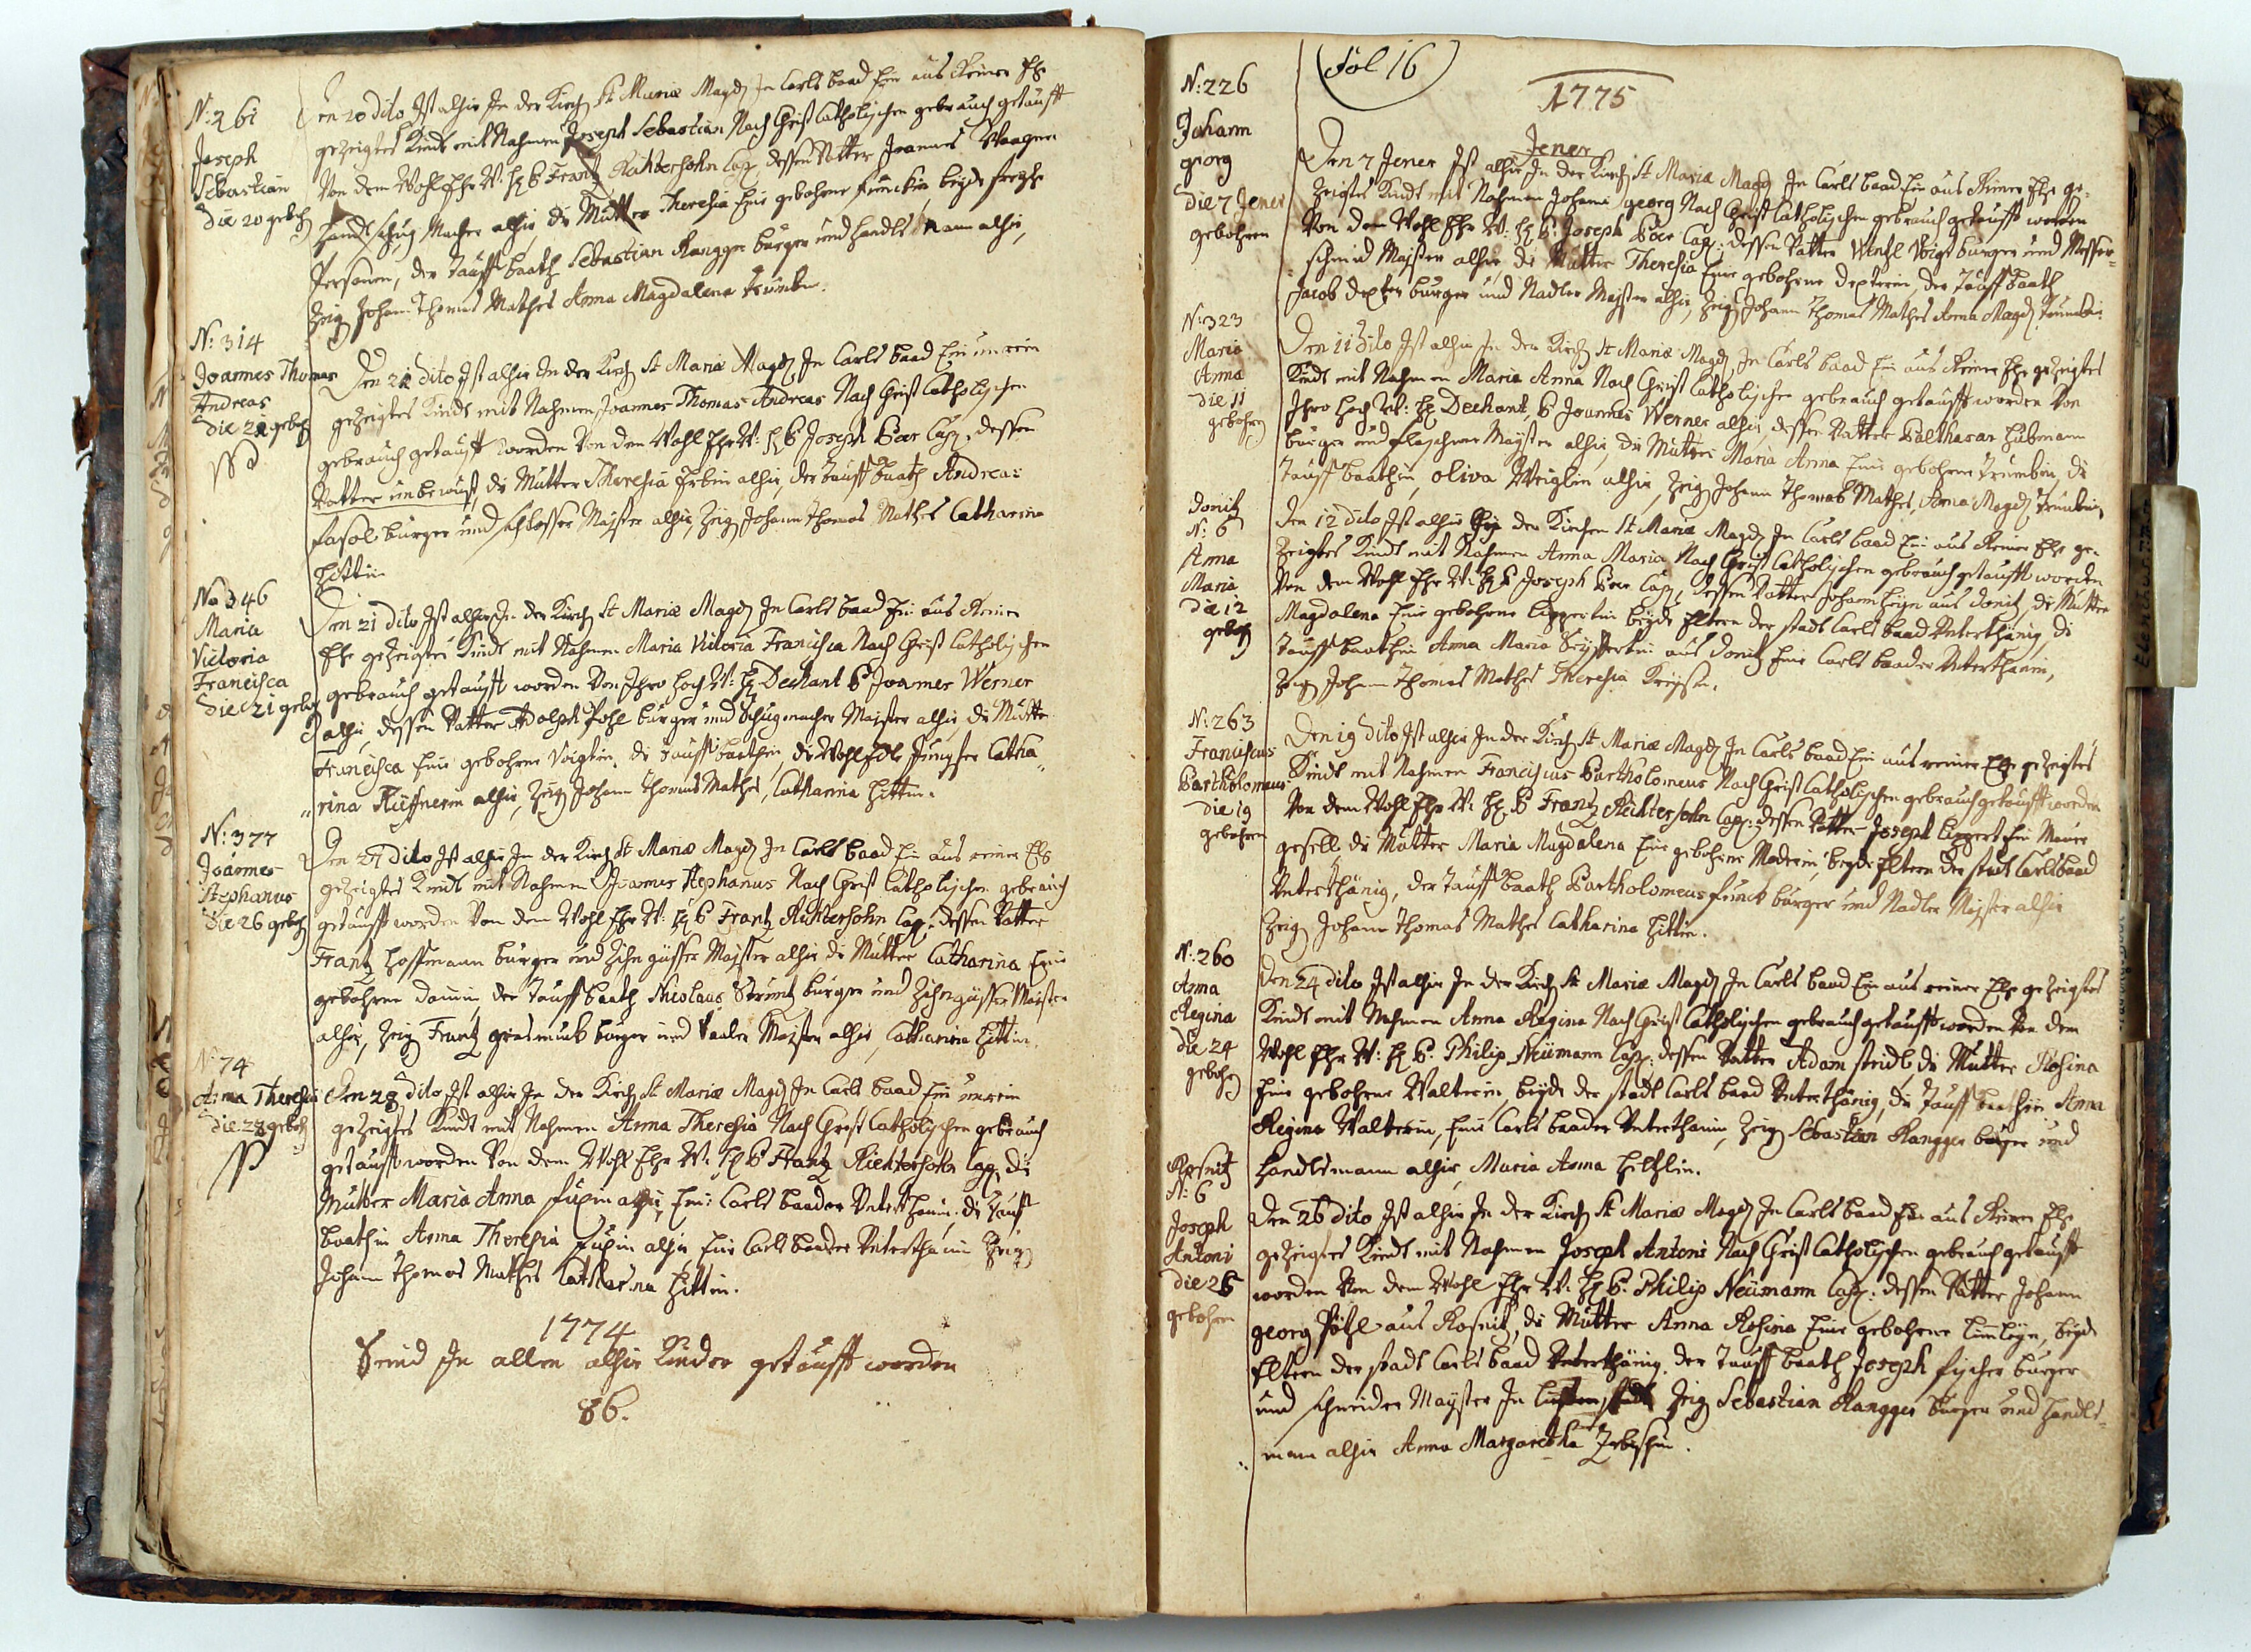 N: 261
Joseph
Sebastian
Die 20 geboh
Den 20 dito Ist alhir In der Kirch St Mariæ Magd In Carls baad Ein aus Reiner Ehe
gezeigtes Kindt mit Nahmen Joseph Sebastian Nach Christ Catholischen gebrauch getaufft
Von dem Wohl Ehr W: H P Frantz Richtersohn Cap, dessen Vatter Joannes Waagner
Handschug Macher alhir, die Mutter Theresia Eine gebohrne Funckin beyde freyhe
Personen, der Tauff baath Sebastian Rangger burger und Handlsmann alhir,
Zeig Johann Thomas Mathes Anna Magdalena
N: 314
Joannes Thomas
Andreas
Die 21 geboh
Den 21 dito Ist alhir In der Kirch St Mariæ Magd In Carls baad Ein unrein
gezeigtes Kindt mit Nahmen Joannes Thomas Andreas Nach Christ Catholischen
gebrauch getaufft worden Von dem Wohl Ehr W: H P Joseph Cap, dessen
Vatter unbewust, die Mutter Theresia alhir, der Tauff baath Andreas
Fasol burger und Schlosser Majster alhir, Zeig Johann Thomas Mathes Catharina
Hittin
No 346
Maria
Victoria
Francisca
Die 21 geboh
Den 21 dito Ist alhir In der Kirch St Mariæ Magd In Carls baad Ein aus Reiner
Ehe gezeigtes Kindt mit Nahmen Maria Victoria Francisca Nach Christ Catholischen
gebrauch getaufft worden Von Ihro Hoch W: H Dechant P Joannes Werner
alhir, dessen Vatter Adolph Pohl burger und Schugmacher Majster alhir, die Mutter
Francisca Eine gebohrne Voigtin, die Tauff baathin, die Wohl Edle Jungfer Catha„
„rina Küffnerin alhir, Zeig Johann Thomas Mathes, Catharina Hittin.
N: 377
Joannes
Stephanus
Die 26 geboh
Den 27 dito Ist alhir In der Kirch St Mariæ Magd In Carls baad Ein aus reiner Ehe
gezeigtes Kindt mit Nahmen Joannes Stephanus Nach Christ Catholischen gebrauch
getaufft worden Von dem Wohl Ehr W: H P Frantz Richtersohn Cap: dessen Vatter
Frantz Hoffmann burger und Zihn güsser Majster alhir die Mutter Catharina Eine
gebohrne der Tauff baath Nicolaus Strunz burger und Zihngüsser Majster
alhir, Zeig Frantz grasmuck burger und Majster alhir, Catharina Hittin.
N 74
Anna Theresia
Die 28 geboh
Den 28 dito Ist alhir In der Kirch St Mariæ Magd In Carls baad Ein unrein
gezeigtes Kindt mit Nahmen Anna Theresia Nach Christ Catholischen gebrauch
getaufft worden Von dem Wohl Ehr W: H P Frantz Richtersohn Cap, die
Mutter Maria Anna alhir, Eine Carls baader Unterthanin. die Tauff
baathin Anna Theresia alhir Eine Carls baader Unterthanin Zeig
Johann Thomas Mathes Catharina Hittin.
1774
Seind In allen alhir Kinder getaufft worden
86.
(Fol 16)
1775
Jener
N: 226
Johann
georg
Die 7 Jener
gebohren
Den 7 Jener Ist alhir In der Kirch St Mariæ Magd In Carls baad Ein aus Reiner Ehe ge-
zeigtes Kindt mit Nahmen Johann georg Nach Christ Catholischen gebrauch getaufft worden
Von dem Wohl Ehr W: H P: Joseph Cap: dessen Vatter Wenzl Voigt burger und Messer-
schmid Majster alhir die Mutter Theresia Eine gebohrne Dexterin, der Tauff baath
Jacob Dexter burger und Nadler Majster alhir, Zeig Johann Thomas Mathes Anna Magd
N: 323
Maria
Anna
Die 11
gebohren
Den 11 dito Ist alhir In der Kirch St Mariæ Magd, In Carls baad Ein aus Reiner Ehe gezeigtes
Kindt mit Nahmen Maria Anna Nach Christ Catholischen gebrauch getaufft worden Von
Ihro Hoch W: H Dechant, P Joannes Werner alhir, dessen Vatter Balthasar Hübmann
burger und Flaschner Majster alhir, die Mutter Maria Anna Eine gebohrne die
Tauff baathin, Oliva Weiglin alhir, Zeig Johann Thomas Mathes, Anna Magd
Donitz
N: 6
Anna
Maria
Die 12
geboh
Den 12 dito Ist alhir In der Kirchen St Mariæ Magd, In Carls baad Ein aus Reiner Ehe ge-
zeigtes Kindt mit Nahmen Anna Maria Nach Christ Catholischen gebrauch getaufft worden
Von dem Wohl Ehr W: H P Joseph Cap, dessen Vatter Johann aus Donitz die Mutter
Magdalena Eine gebohrne Lippertin beyde Eltern der stadt Carls baad Unterthänig die
Tauff baathin Anna Maria Seyffertin aus Donitz Eine Carls baader Unterthanin,
Zeig Johann Thomas Mathes Theresia
N: 263
Franciscus
Bartholomeus
Die 19
gebohren
Den 19 dito Ist alhir In der Kirch St Mariæ Magd, In Carls baad Ein aus reiner Ehe gezeigtes
Kindt mit Nahmen Franciscus Bartholomeus Nach Christ Catholischen gebrauch getaufft worden
Von dem Wohl Ehr W: H P Frantz Richtersohn Cap: dessen Vatter Joseph Lippert Ein Maurer
gesell die Mutter Maria Magdalena Eine gebohrne Moderin, beyde Eltern der stadt Carls baad
Unterthänig, der Tauff baath Bartholomeus Funck burger und Nadler Majster alhir
Zeig Johann Thomas Mathes Catharina Hittin.
N: 260
Anna
Regina
Die 24
gebohren
Den 24 dito Ist alhir In der Kirch St Mariæ Magd, In Carls baad Ein aus reiner Ehe gezeigtes
Kindt mit Nahmen Anna Regina Nach Christ Catholischen gebrauch getaufft worden Von dem
Wohl Ehr W: H P: Philip Neümann Cap: dessen Vatter Adam Heidl die Mutter Rosina
Eine gebohrne Walterin, beyde der stadt Carls baad Unterthänig, die Tauff baathin Anna
Regina Walterin, Eine Carls baader Unterthanin, Zeig Sebastian Rangger burger und
Handlsmann alhir, Maria Anna
Rosnitz
N: 6
Joseph
Antoni
Die 26
gebohren
Den 26 dito Ist alhir In der Kirch St Mariæ Magd In Carls baad Ein aus Reiner Ehe
gezeigtes Kindt mit Nahmen Joseph Antoni Nach Christ Catholischen gebrauch getaufft
worden Von dem Wohl Ehr W: H P: Philip Neümann Cap: dessen Vatter Johann
georg Pötzl aus Rosnitz, die Mutter Anna Rosina Eine gebohrne beyde
Eltern der stadt Carls baad Unterthänig. der Tauff baath Joseph Fischer burger
und schneider Mayster In Zeig Sebastian Rangger burger und Handls-
mann alhir Anna Margaretha